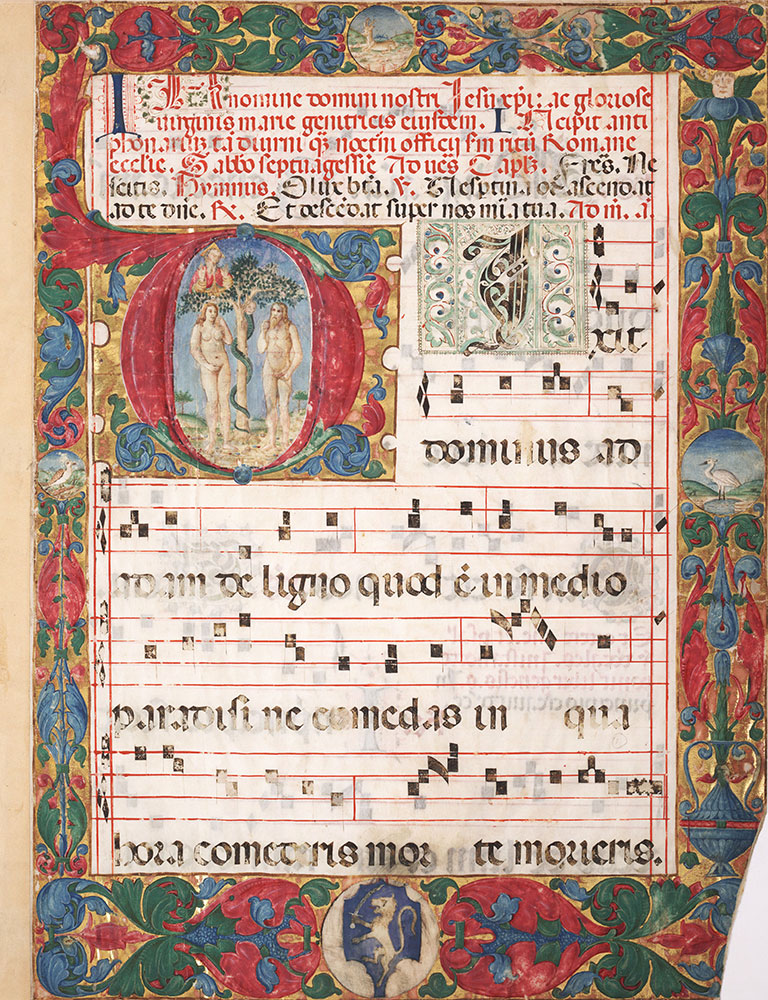 In nomine domini nostri Jesu xpi: ac gloriose
virginis marie genitricis eiusdem. Incipit anti
phonariuz tā diurni qz nocturni officij sm ritū Romane
ecclie. Sabbo septuagessie Ad ves Capłz. Frēs. Ne
scitis. Hymnus. O lux bta. V. Vespertina oō ascendat
ad te dñe. R. Et descēdat super nos mīa tua. Ad m. a.
Dixit
dominus ad
adam de ligno quod ē in medio
paradisi ne comedas in qua
hora comederis mor te morieris.